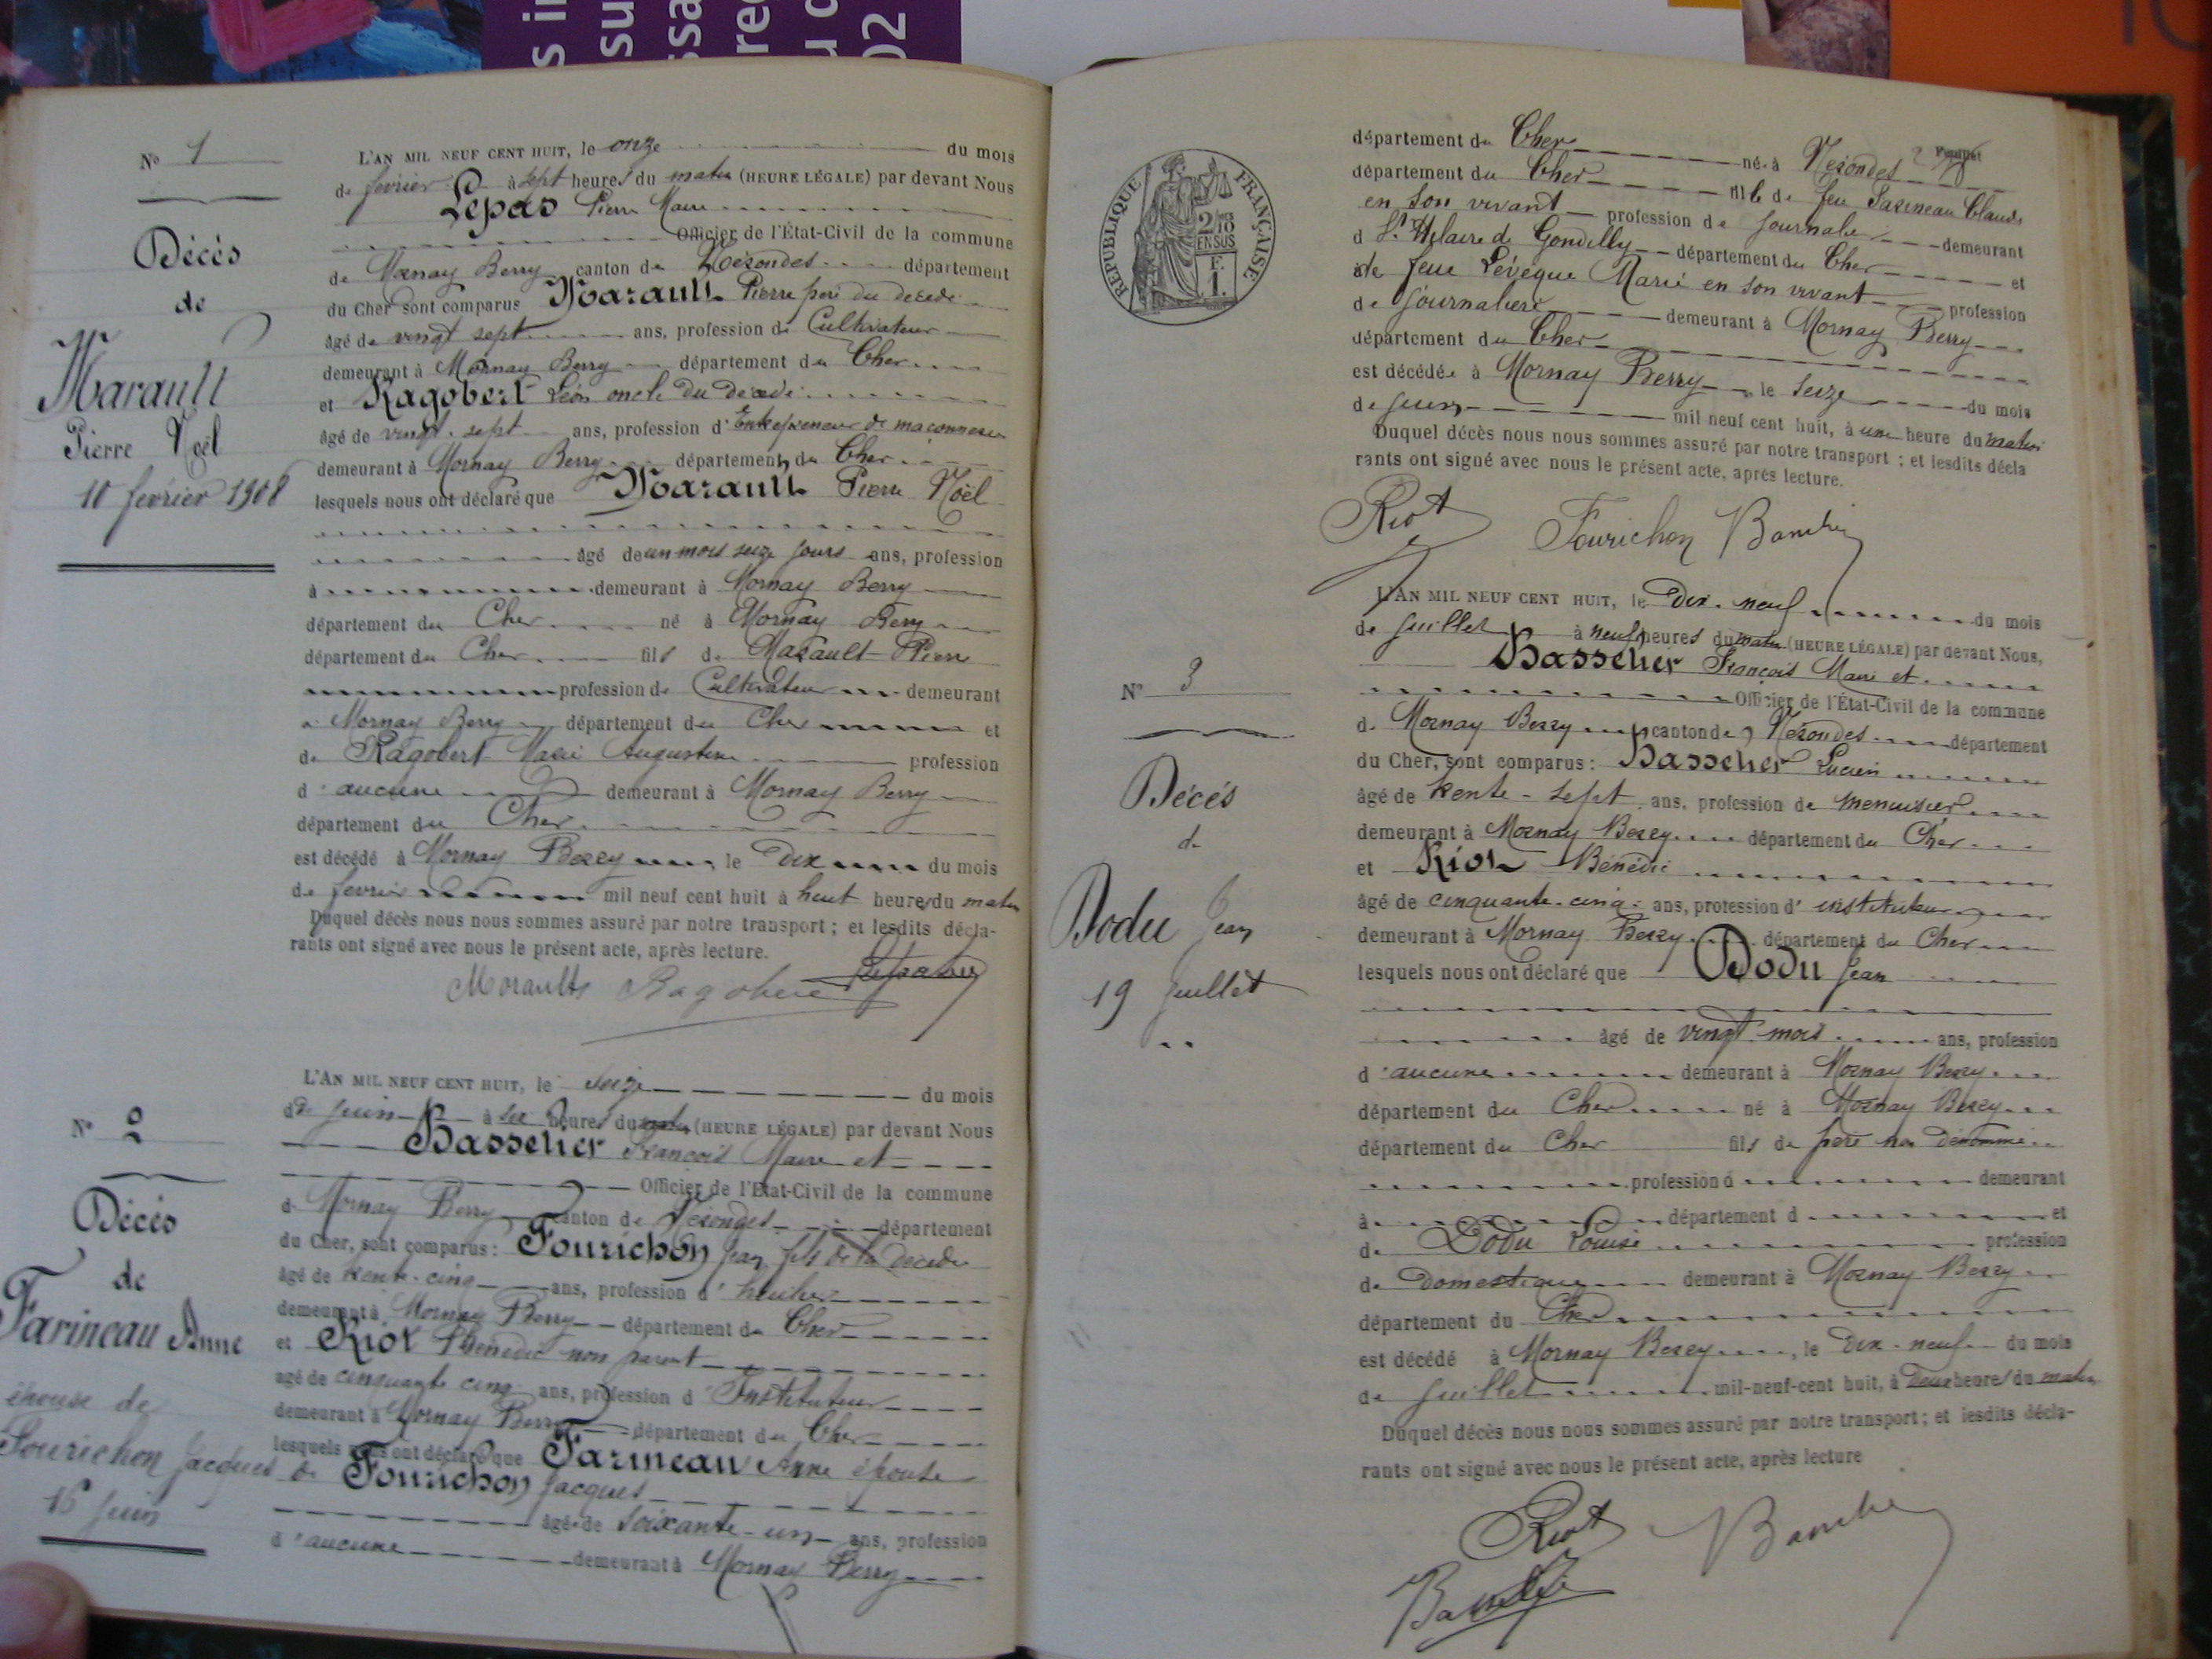 N° 1
Décès
de
Marault
Pierre Noël
10 février 1908
L'AN MIL NEUF CENT HUIT, le onze du mois
de février à sept heures du matin (HEURE LÉGALE) par devant Nous
Lepas Pierre Maire
Officier de l'État-Civil de la commune
de Mornay Berry canton de Nérondes département
du Cher sont comparus Marault Pierre père du décédé
âgé de vingt sept ans, profession de Cultivateur
demeurant à Mornay Berry département du Cher
et Ragobert Léon oncle du décédé
âgé de vingt-sept ans, profession d'Entrepreneur de maçonnerie
demeurant à Mornay Berry département du Cher
lesquels nous ont déclaré que Marault Pierre Noël
âgé de un mois seize jours ans, profession
à demeurant à Mornay Berry
département du Cher né à Mornay Berry
département du Cher fils de Marault Pierre
profession de Cultivateur demeurant
à Mornay Berry département du Cher et
de Ragobert Marie Augustine profession
d'aucune demeurant à Mornay Berry
département du Cher
est décédé à Mornay Berry le Dix du mois
de février mil neuf cent huit à huit heures du matin
Duquel décès nous nous sommes assuré par notre transport ; et lesdits décla-
rants ont signé avec nous le présent acte, après lecture.
Marault Ragobert
N° 2
Décès
de
Farineau Anne
épouse de
Fourichon Jacques
16 Juin
L'AN MIL NEUF CENT HUIT, le seize du mois
de Juin à six heures du matin (HEURE LÉGALE) par devant Nous
Basselier François Maire et
Officier de l'État-Civil de la commune
d Mornay Berry canton de Nérondes département
du Cher, sont comparus : Fourichon Jean fils de la décédée
âgé de trente-cinq ans, profession d'huilier
demeurant à Mornay Berry département du Cher
et Riot Bénédic non parent
âgé de cinquante cinq ans, profession d'Instituteur
demeurant à Mornay Berry département du Cher
lesquels nous ont déclaré que Farineau Anne épouse
de Fourichon Jacques
âgée de soixante-un ans, profession
d'aucune demeurant à Mornay Berry
REPUBLIQUE FRANÇAISE
2/10
EN SUS
F.
1.
Feuillet
département du Cher née à Nérondes
département du Cher fille de feu Farineau Claude
en son vivant profession de Journalier demeurant
à St Hilaire de Gondilly département du Cher et
de feue Lévèque Marie en son vivant profession
de journalière demeurant à Mornay Berry
département du Cher
est décédée à Mornay Berry le seize du mois
de juin mil neuf cent huit, à une heure du matin
Duquel décès nous nous sommes assuré par notre transport ; et lesdits décla
rants ont signé avec nous le présent acte, après lecture.
Riot Fourichon
N° 3
Décès
de
Dodu Jean
19 Juillet
L'AN MIL NEUF CENT HUIT, le Dix-neuf du mois
de Juillet à neuf heures du matin (HEURE LÉGALE) par devant Nous,
Basselier François Maire et
Officier de l'État-Civil de la commune
de Mornay Berry canton de Nérondes département
du Cher, sont comparus : Basselier Lucien
âgé de trente-sept ans, profession de menuisier
demeurant à Mornay Berry département du Cher
et Riot Bénédic
âgé de cinquante-cinq ans, profession d'instituteur
demeurant à Mornay Berry département du Cher
lesquels nous ont déclaré que Dodu Jean
âgé de vingt mois ans, profession
d'aucune demeurant à Mornay Berry
département du Cher né à Mornay Berry
département du Cher fils de père non dénommé
profession d demeurant
à département d et
de Dodu Louise profession
de Domestique demeurant à Mornay Berry
département du Cher
est décédé à Mornay Berry, le Dix-neuf du mois
de Juillet mil-neuf-cent huit, à Deux heures du matin
Duquel décès nous nous sommes assuré par notre transport ; et lesdits décla-
rants ont signé avec nous le présent acte, après lecture
Riot